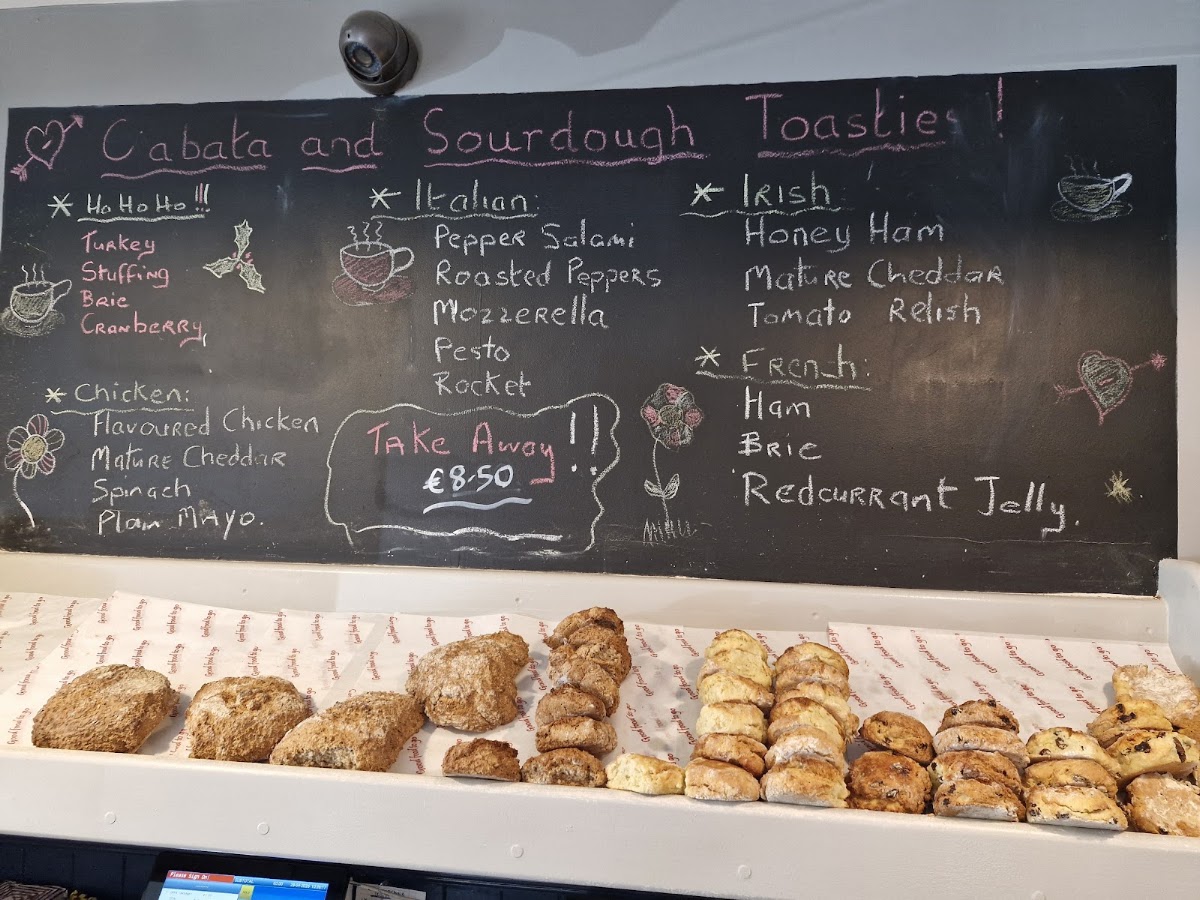 Ciabata and Sourdough Toasties!
* Ho Ho Ho!!!
Turkey
Stuffing
Brie
Cranberry
* Chicken:
Flavoured Chicken
Mature Cheddar
Spinach
Plain Mayo.
* Italian:
Pepper Salami
Roasted Peppers
Mozzerella
Pesto
Rocket
Take Away!!
€8.50
* Irish:
Honey Ham
Mature Cheddar
Tomato Relish
* French:
Ham
Brie
Redcurrant Jelly.
Good food to go
Please Sign On!